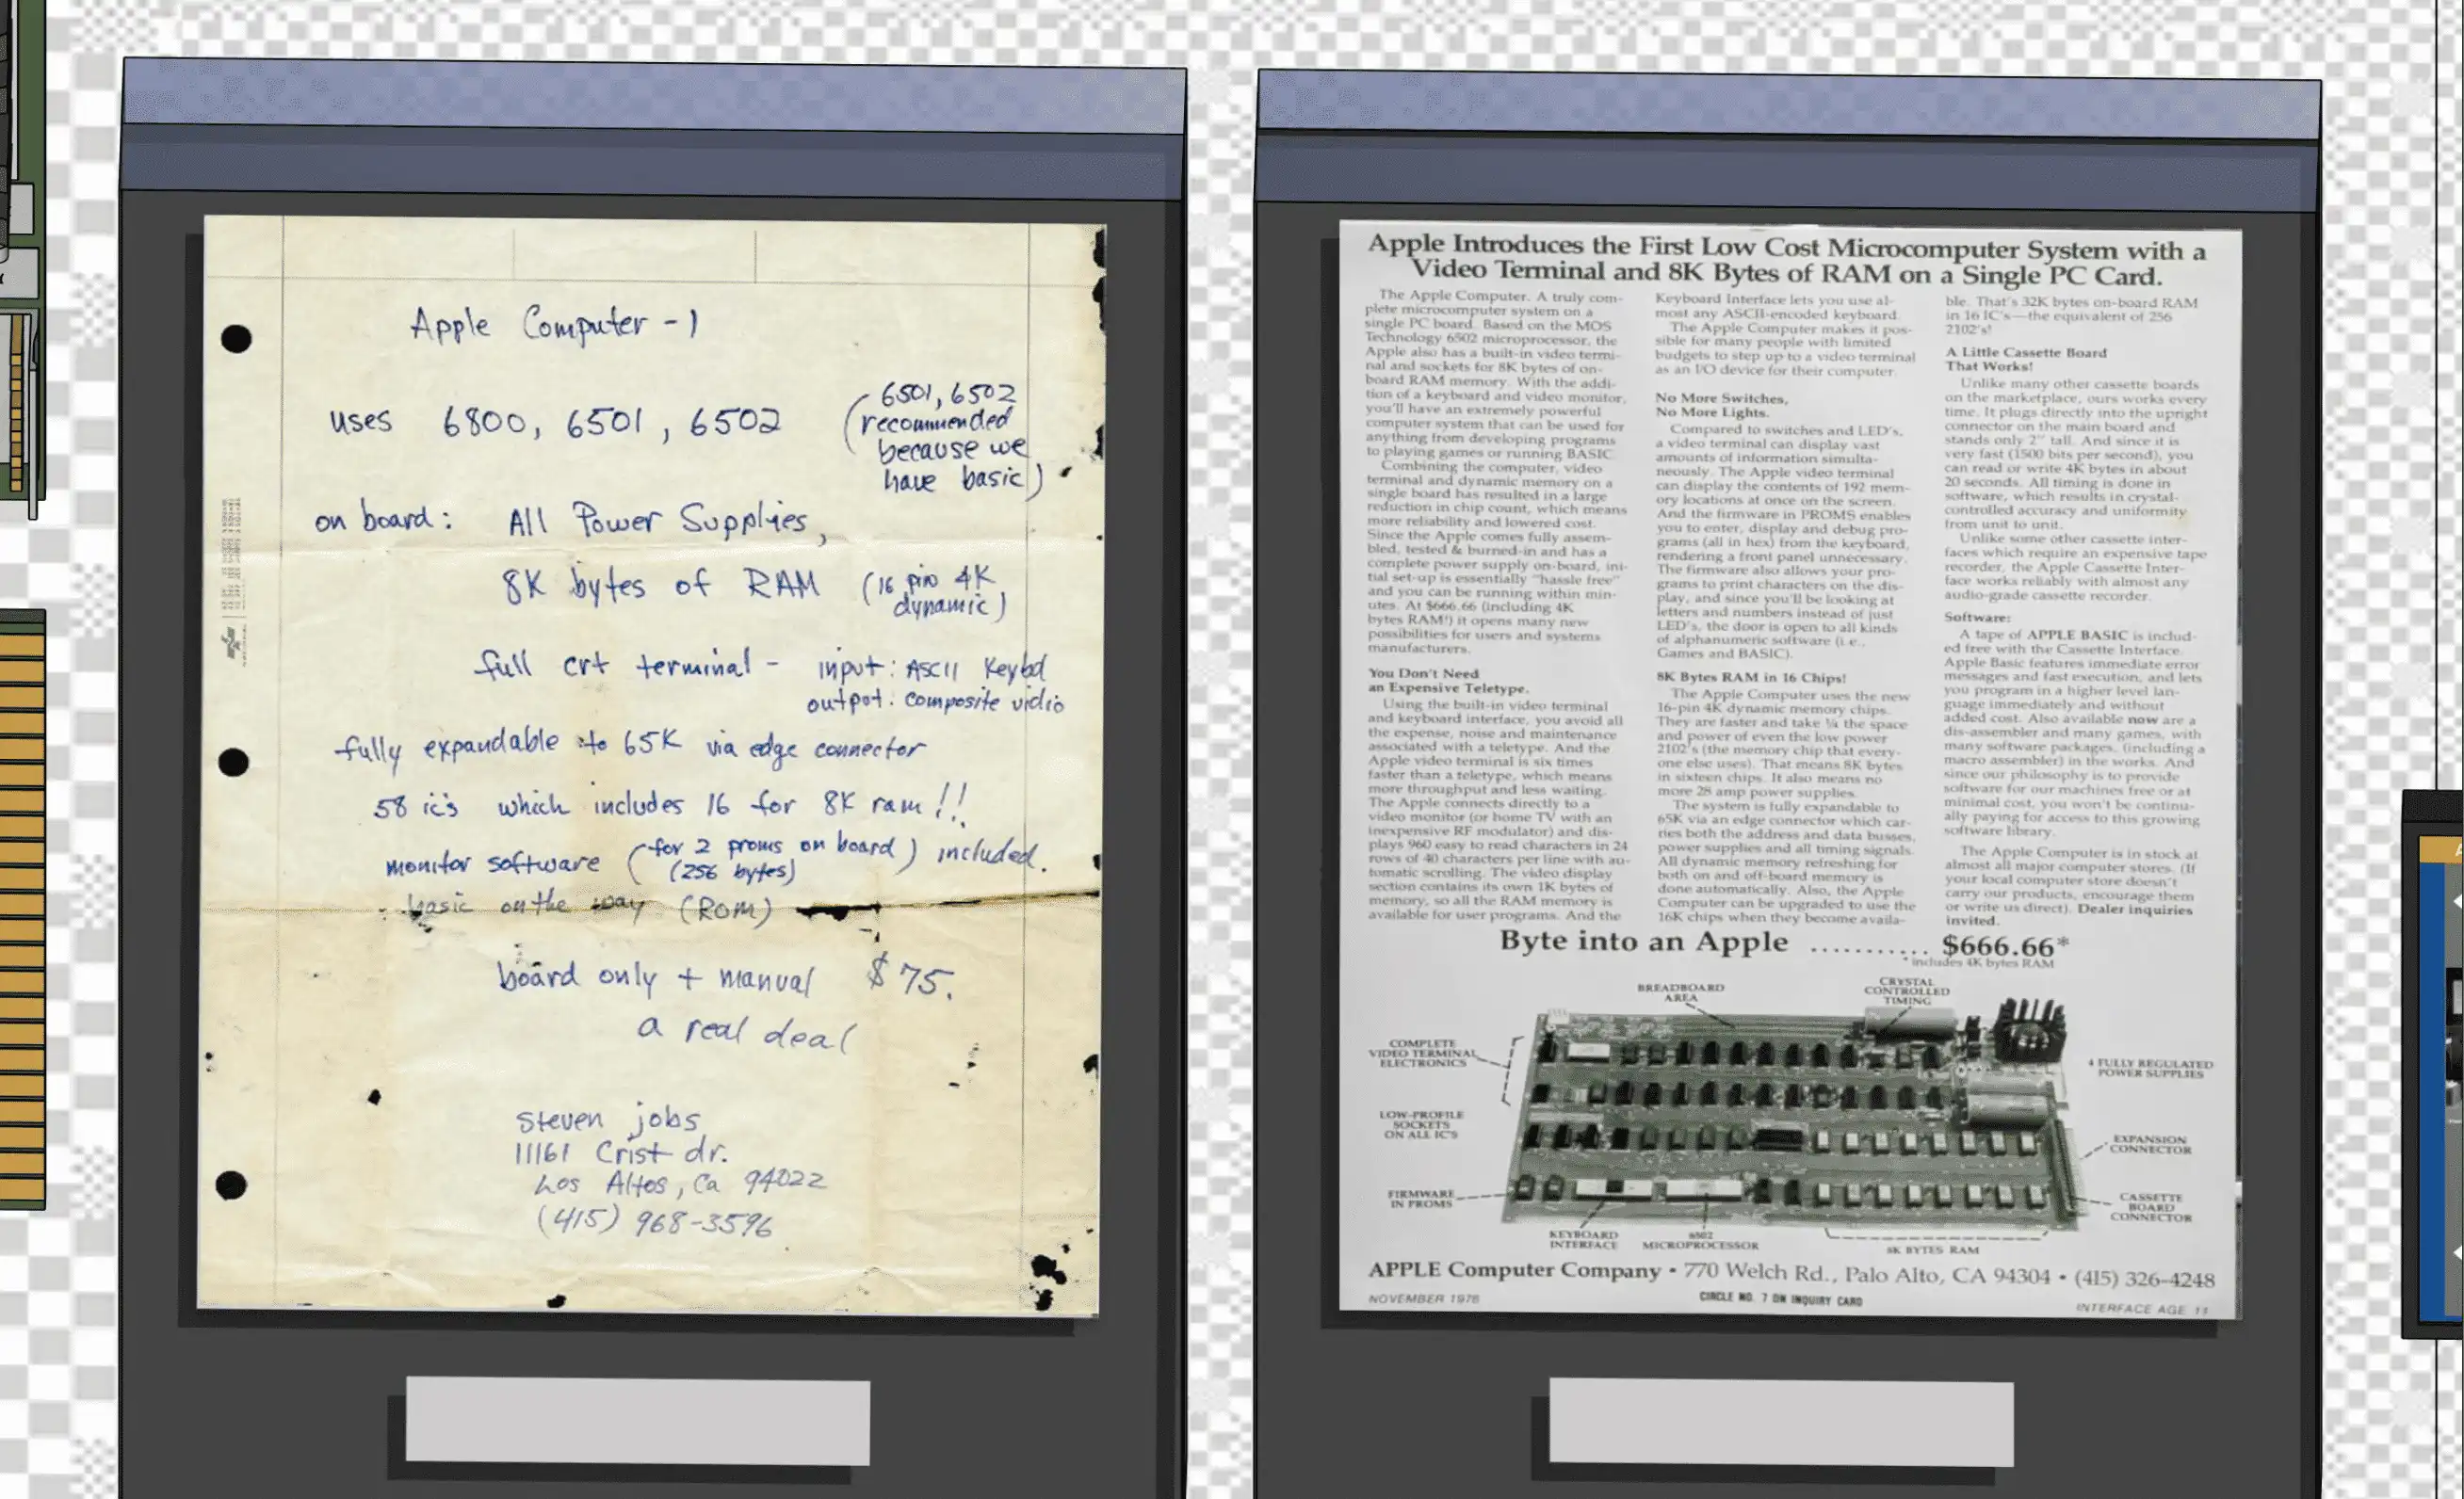 Apple Computer-1
uses 6800, 6501, 6502 (6501, 6502
recommended
because we
have basic)
on board: All Power Supplies,
8K bytes of RAM (16 pin 4K
dynamic)
full crt terminal - input: ASCII Keybd
output: composite vidio
fully expandable to 65K via edge connector
58 ic's which includes 16 for 8K ram!!
monitor software (for 2 proms on board) included.
(256 bytes)
basic on the way (ROM)
board only + manual $75.
a real deal
Steven jobs
11161 Crist dr.
Los Altos, Ca 94022
(415) 968-3596
Apple Introduces the First Low Cost Microcomputer System with a
Video Terminal and 8K Bytes of RAM on a Single PC Card.
The Apple Computer. A truly com-
plete microcomputer system on a
single PC board. Based on the MOS
Technology 6502 microprocessor, the
Apple also has a built-in video termi-
nal and sockets for 8K bytes of on-
board RAM memory. With the addi-
tion of a keyboard and video monitor,
you'll have an extremely powerful
computer system that can be used for
anything from developing programs
to playing games or running BASIC.
Combining the computer, video
terminal and dynamic memory on a
single board has resulted in a large
reduction in chip count, which means
more reliability and lowered cost.
Since the Apple comes fully assem-
bled, tested & burned-in and has a
complete power supply on-board, ini-
tial set-up is essentially "hassle free"
and you can be running within min-
utes. At $666.66 (including 4K
bytes RAM!) it opens many new
possibilities for users and systems
manufacturers.
You Don't Need
an Expensive Teletype.
Using the built-in video terminal
and keyboard interface, you avoid all
the expense, noise and maintenance
associated with a teletype. And the
Apple video terminal is six times
faster than a teletype, which means
more throughput and less waiting.
The Apple connects directly to a
video monitor (or home TV with an
inexpensive RF modulator) and dis-
plays 960 easy to read characters in 24
rows of 40 characters per line with au-
tomatic scrolling. The video display
section contains its own 1K bytes of
memory, so all the RAM memory is
available for user programs. And the
Keyboard Interface lets you use al-
most any ASCII-encoded keyboard.
The Apple Computer makes it pos-
sible for many people with limited
budgets to step up to a video terminal
as an I/O device for their computer.
No More Switches,
No More Lights.
Compared to switches and LED's,
a video terminal can display vast
amounts of information simulta-
neously. The Apple video terminal
can display the contents of 192 mem-
ory locations at once on the screen.
And the firmware in PROMS enables
you to enter, display and debug pro-
grams (all in hex) from the keyboard,
rendering a front panel unnecessary.
The firmware also allows your pro-
grams to print characters on the dis-
play, and since you'll be looking at
letters and numbers instead of just
LED's, the door is open to all kinds
of alphanumeric software (i.e.,
Games and BASIC).
8K Bytes RAM in 16 Chips!
The Apple Computer uses the new
16-pin 4K dynamic memory chips.
They are faster and take ¼ the space
and power of even the low power
2102's (the memory chip that every-
one else uses). That means 8K bytes
in sixteen chips. It also means no
more 28 amp power supplies.
The system is fully expandable to
65K via an edge connector which car-
ries both the address and data busses,
power supplies and all timing signals.
All dynamic memory refreshing for
both on and off-board memory is
done automatically. Also, the Apple
Computer can be upgraded to use the
16K chips when they become availa-
ble. That's 32K bytes on-board RAM
in 16 IC's—the equivalent of 256
2102's!
A Little Cassette Board
That Works!
Unlike many other cassette boards
on the marketplace, ours works every
time. It plugs directly into the upright
connector on the main board and
stands only 2" tall. And since it is
very fast (1500 bits per second), you
can read or write 4K bytes in about
20 seconds. All timing is done in
software, which results in crystal-
controlled accuracy and uniformity
from unit to unit.
Unlike some other cassette inter-
faces which require an expensive tape
recorder, the Apple Cassette Inter-
face works reliably with almost any
audio-grade cassette recorder.
Software:
A tape of APPLE BASIC is includ-
ed free with the Cassette Interface.
Apple Basic features immediate error
messages and fast execution, and lets
you program in a higher level lan-
guage immediately and without
added cost. Also available now are a
dis-assembler and many games, with
many software packages, (including a
macro assembler) in the works. And
since our philosophy is to provide
software for our machines free or at
minimal cost, you won't be continu-
ally paying for access to this growing
software library.
The Apple Computer is in stock at
almost all major computer stores. (If
your local computer store doesn't
carry our products, encourage them
or write us direct). Dealer inquiries
invited.
Byte into an Apple .......... $666.66*
* includes 4K bytes RAM
BREADBOARD
AREA
CRYSTAL
CONTROLLED
TIMING
COMPLETE
VIDEO TERMINAL
ELECTRONICS
4 FULLY REGULATED
POWER SUPPLIES
LOW-PROFILE
SOCKETS
ON ALL IC'S
EXPANSION
CONNECTOR
FIRMWARE
IN PROMS
CASSETTE
BOARD
CONNECTOR
KEYBOARD
INTERFACE
6502
MICROPROCESSOR
8K BYTES RAM
APPLE Computer Company • 770 Welch Rd., Palo Alto, CA 94304 • (415) 326-4248
NOVEMBER 1976
CIRCLE NO. 7 ON INQUIRY CARD
INTERFACE AGE 11